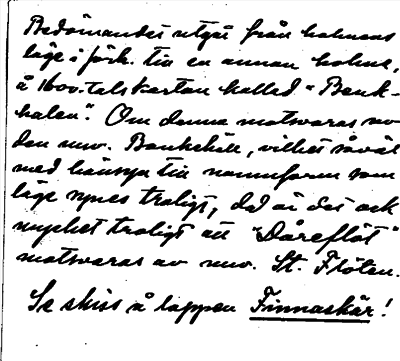 Bedömandet utgår från holmens
läge i förh. till en annan holme,
å 1600-talskartan kallad "Benk-
halen". Om denna motsvaras av
den nuv. Bänkehäll, vilket såväl
med hänsyn till namnform som
läge synes troligt, då är det ock
mycket troligt att "Dåreflöt"
motsvaras av nuv. St. Flöten.
Se skiss å lappen Finnaskär!